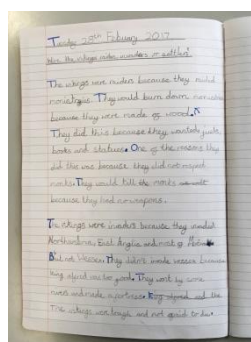 Tuesday 28th Febuary 2017
Were the vikings raiders, invaders or settlers?
The vikings were raiders because they raided
monistrys. They would burn down
because they were made of wood.
They did this because they wanted
books and statues. One of the reasons they
did this was because they did not respect
monks. They would kill the monks
because they had no weapons.
The vikings were invaders because they invaded
Northumbria, East Anglia and most of
But not Wessex. They didn't invade wessex because
king alfred was too good. They went by
rivers and made a
The vikings was tough and not afraid to